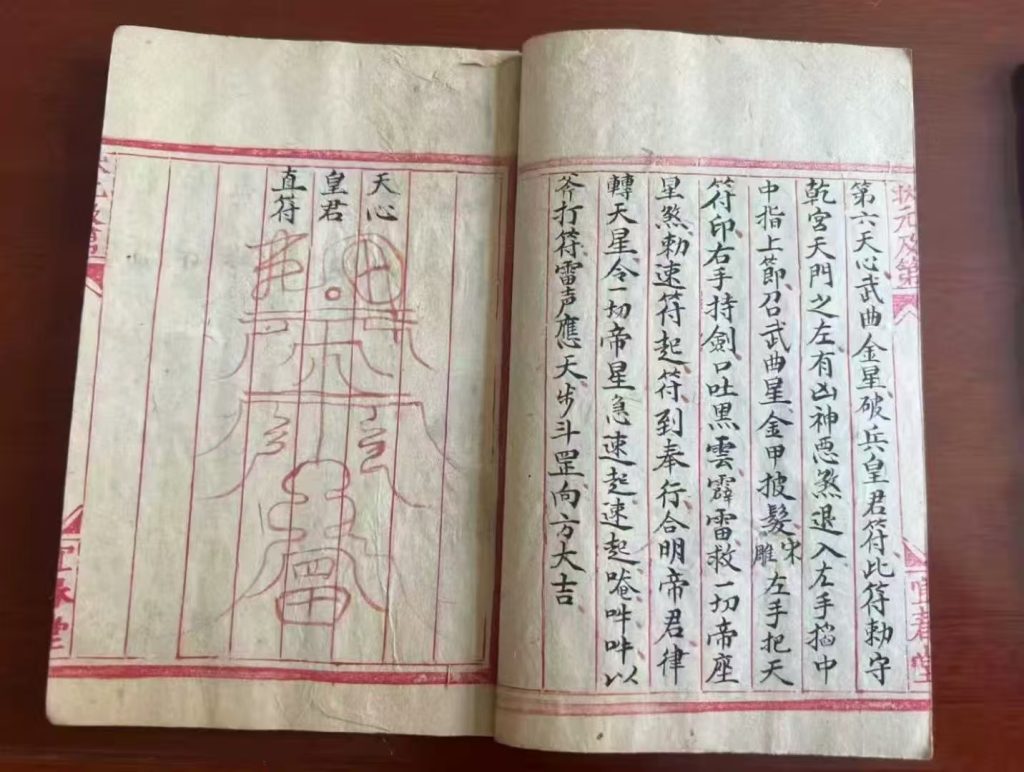 状元及第
第六天心武曲金星破兵皇君符此符勅守
乾宮天門之左有凶神悪煞退入左手搯中
中指上節召武曲星金甲披髮宋雕左手把天
符印右手持劍口吐黑雲霹雷救一切帝座
星煞勅速符起符到奉行合明帝君律
轉天星令一切帝星急速起速起唵吽吽以
斧打符雷声應天步斗罡向方大吉
天心
皇君
直符